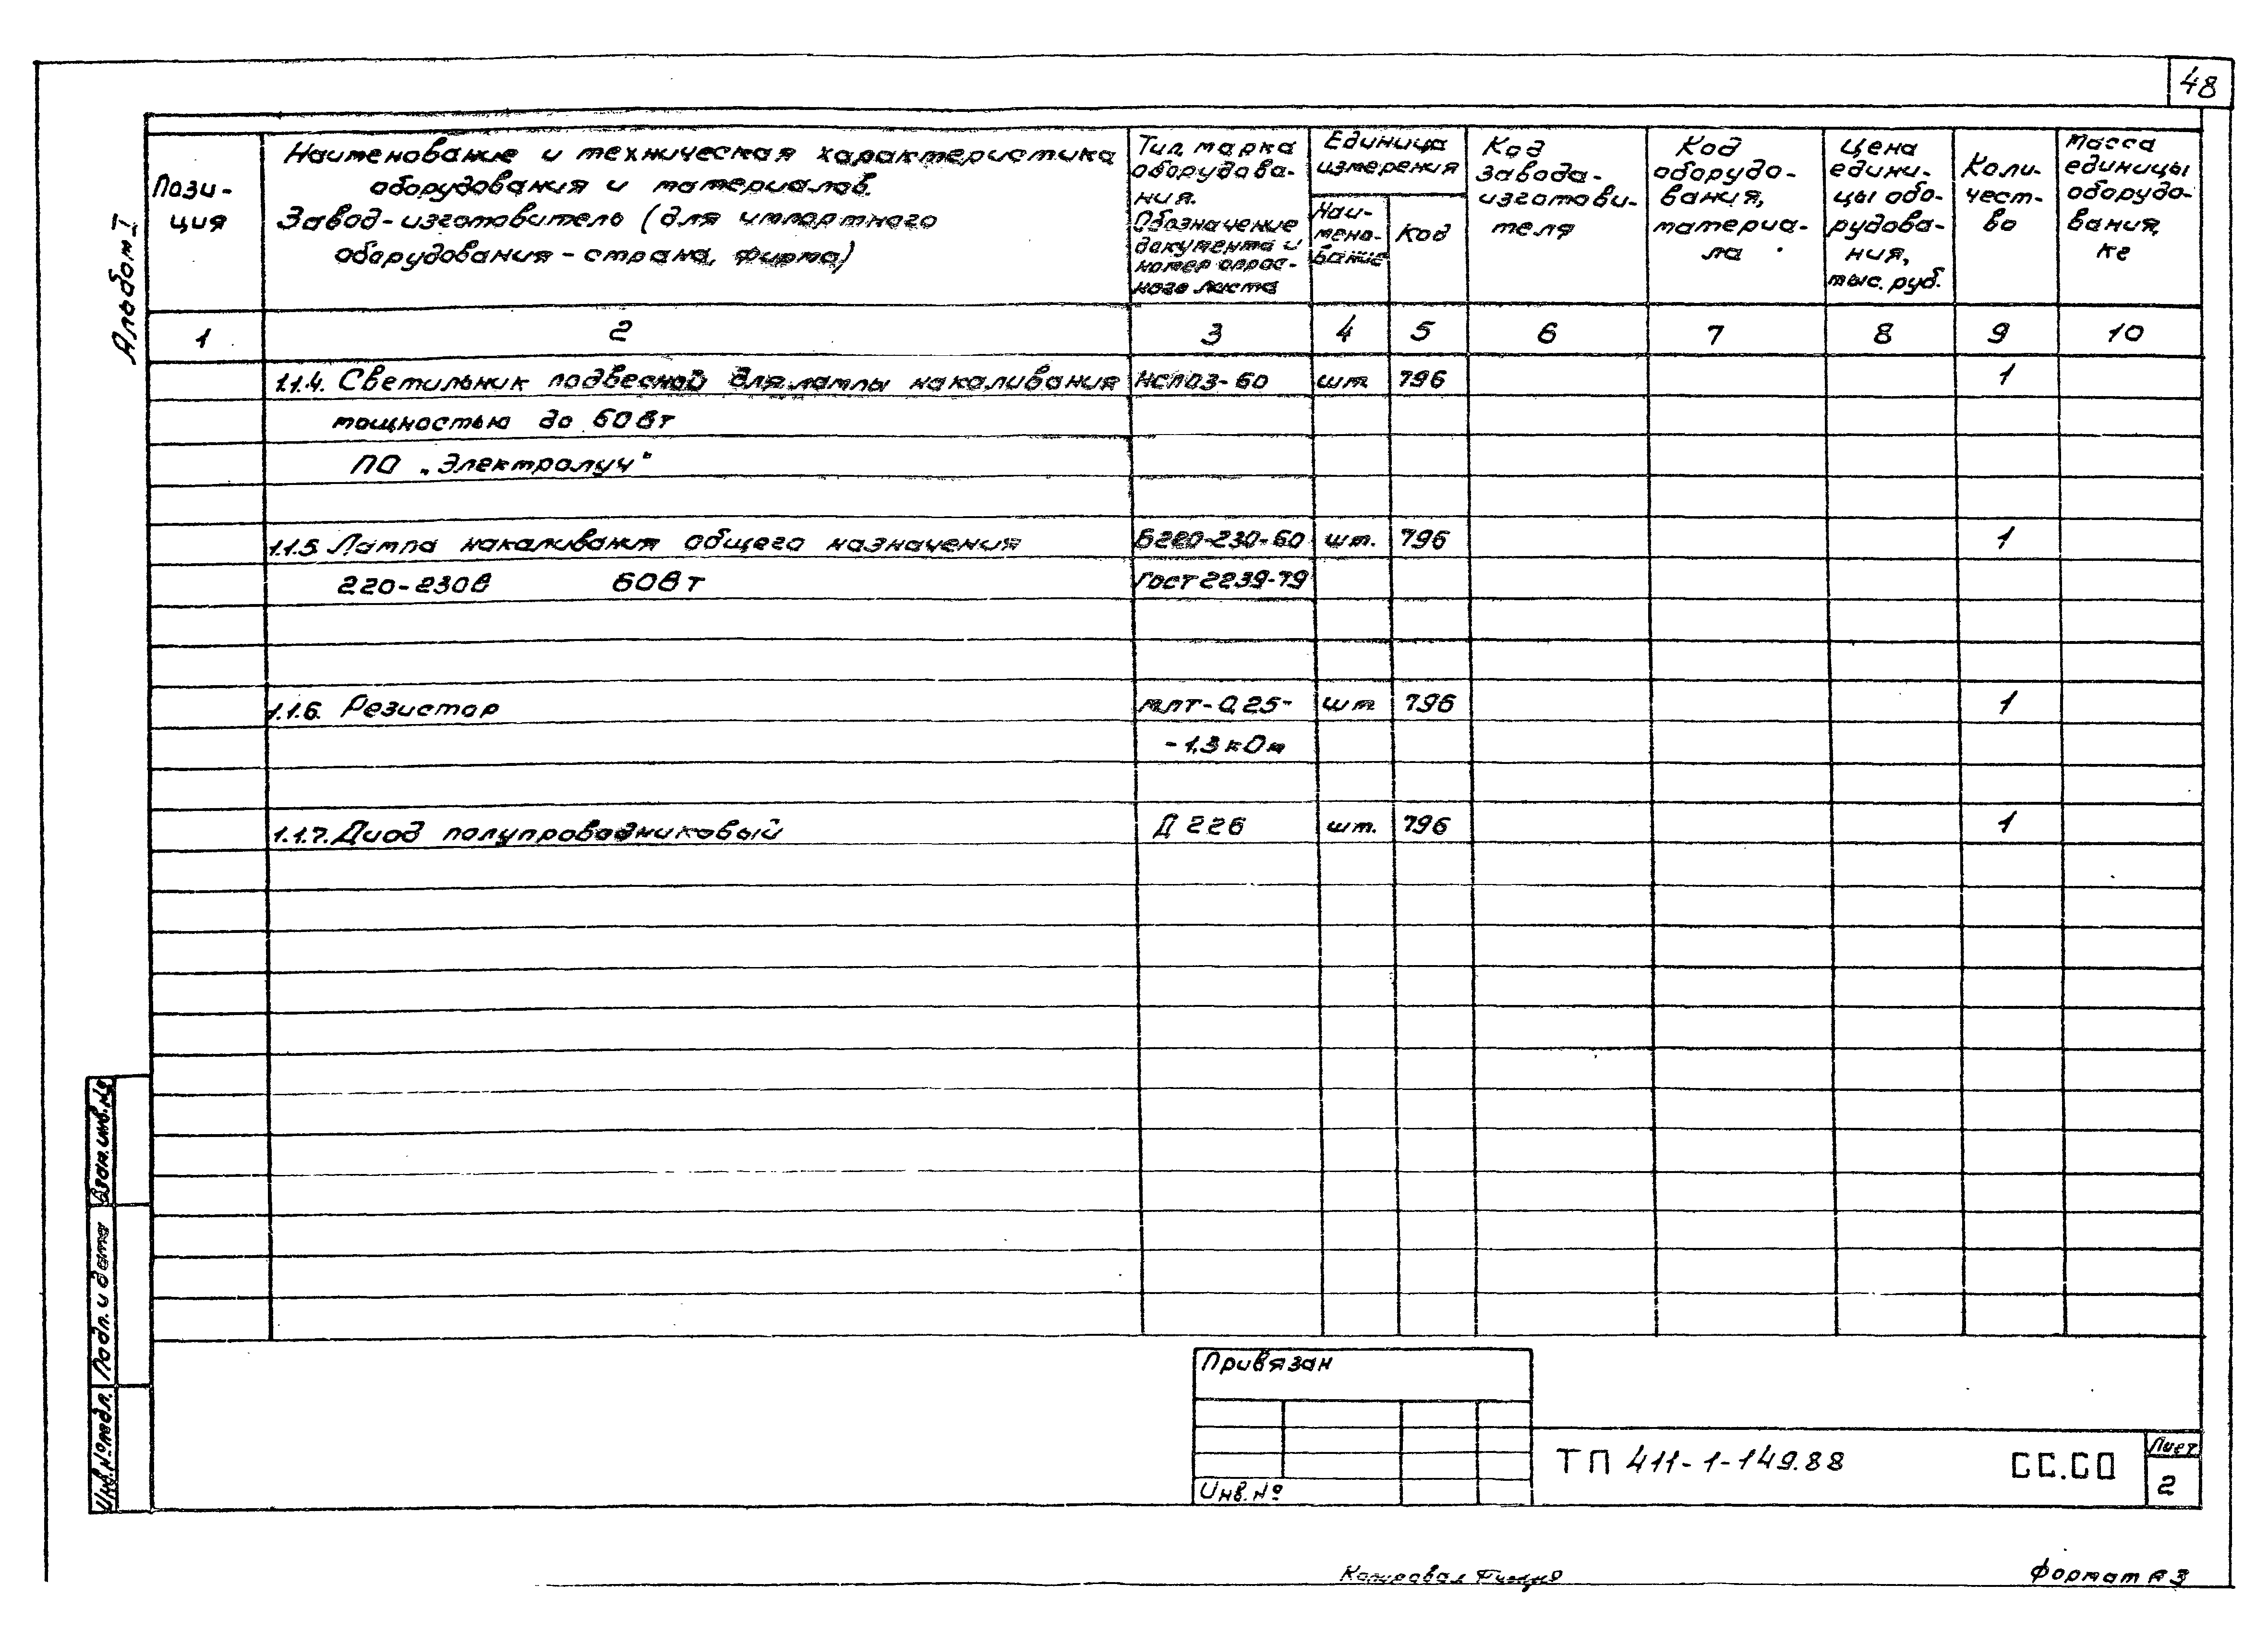 48
Альбом I
Пози-
ция
Наименование и техническая характеристика
оборудования и материалов.
Завод-изготовитель (для импортного
оборудования - страна, фирма)
Тип, марка
оборудова-
ния.
Обозначение
документа и
номер опрос-
ного листа
Единица
измерения
Наи-
мено-
вание
Код
Код
завода-
изготови-
теля
Код
оборудо-
вания,
материа-
ла
Цена
едини-
цы обо-
рудова-
ния,
тыс. руб.
Коли-
чест-
во
Масса
единицы
оборудо-
вания,
кг
1 2 3 4 5 6 7 8 9 10
1.1.4. Светильник подвесной для лампы накаливания НСП03-60 шт 796 1
мощностью до 60 Вт
ПО „Электролуч"
1.1.5. Лампа накаливания общего назначения Б220-230-60 шт. 796 1
220-230В 60Вт ГОСТ 2239-79
1.1.6. Резистор МЛТ-0,25- шт 796 1
-1,3 кОм
1.1.7. Диод полупроводниковый Д 226 шт. 796 1
Взам. инв. №
Подп. и дата
Инв. № подл.
Привязан
Инв. №
ТП 411-1-149.88 СС.СО
Лист
2
Копировал
Формат А3